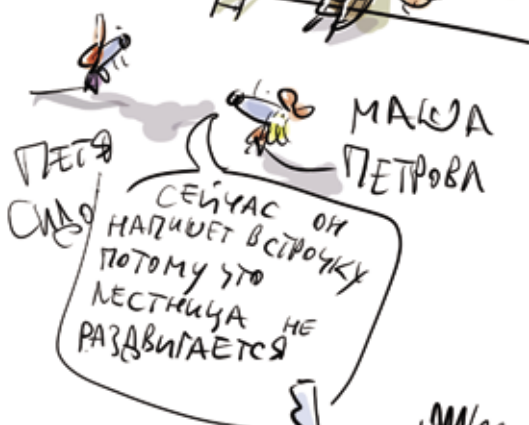 МАША
ПЕТРОВА
ПЕТЯ
СИДО
СЕЙЧАС ОН
НАПИШЕТ В СТРОЧКУ
ПОТОМУ ЧТО
ЛЕСТНИЦА НЕ
РАЗДВИГАЕТСЯ